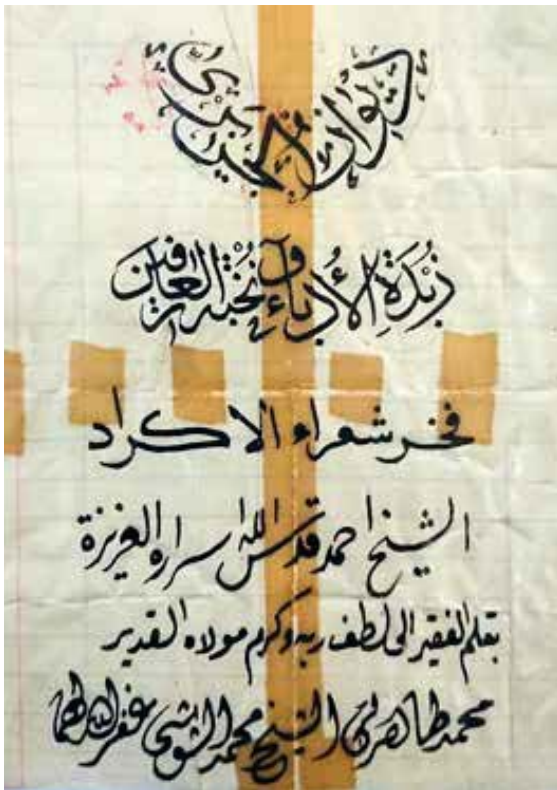 ديوان الجزيري
زُبْدَةِ الأُدباءِ ونخبة العارفين
فخر شعراء الاكراد
الشيخ احمد قدس الله اسراره العزيزة
بقلم الفقير الى لطف ربه وكرم مولاه القدير
محمد طاهر بن الشيخ محمد الشوشي غفر الله لهما